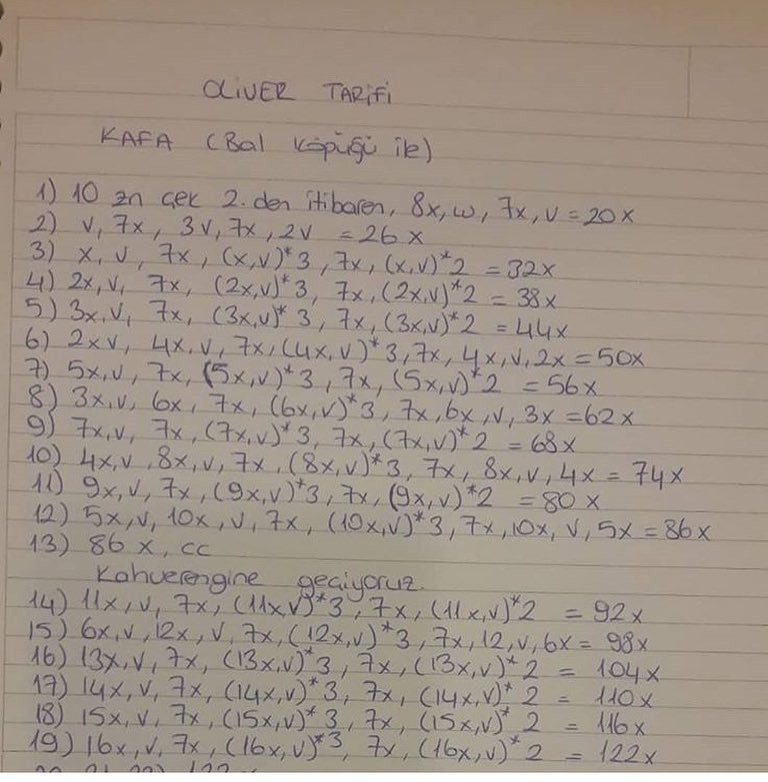 OLiVER TARİFİ
KAFA (Bal Köpüğü ile)
1) 10 zn çek 2. den itibaren, 8x, w, 7x, v = 20x
2) v, 7x, 3v, 7x, 2v = 26x
3) x, v, 7x, (x,v)*3, 7x, (x,v)*2 = 32x
4) 2x, v, 7x, (2x,v)*3, 7x, (2x,v)*2 = 38x
5) 3x, v, 7x, (3x,v)*3, 7x, (3x,v)*2 = 44x
6) 2xv, 4x, v, 7x, (4x,v)*3, 7x, 4x, v, 2x = 50x
7) 5x, v, 7x, (5x,v)*3, 7x, (5x,v)*2 = 56x
8) 3x, v, 6x, 7x, (6x,v)*3, 7x, 6x, v, 3x = 62x
9) 7x, v, 7x, (7x,v)*3, 7x, (7x,v)*2 = 68x
10) 4x, v, 8x, v, 7x, (8x,v)*3, 7x, 8x, v, 4x = 74x
11) 9x, v, 7x, (9x,v)*3, 7x, (9x,v)*2 = 80x
12) 5x, v, 10x, v, 7x, (10x,v)*3, 7x, 10x, v, 5x = 86x
13) 86x, cc
Kahverengine geçiyoruz.
14) 11x, v, 7x, (11x,v)*3, 7x, (11x,v)*2 = 92x
15) 6x, v, 12x, v, 7x, (12x,v)*3, 7x, 12, v, 6x = 98x
16) 13x, v, 7x, (13x,v)*3, 7x, (13x,v)*2 = 104x
17) 14x, v, 7x, (14x,v)*3, 7x, (14x,v)*2 = 110x
18) 15x, v, 7x, (15x,v)*3, 7x, (15x,v)*2 = 116x
19) 16x, v, 7x, (16x,v)*3, 7x, (16x,v)*2 = 122x